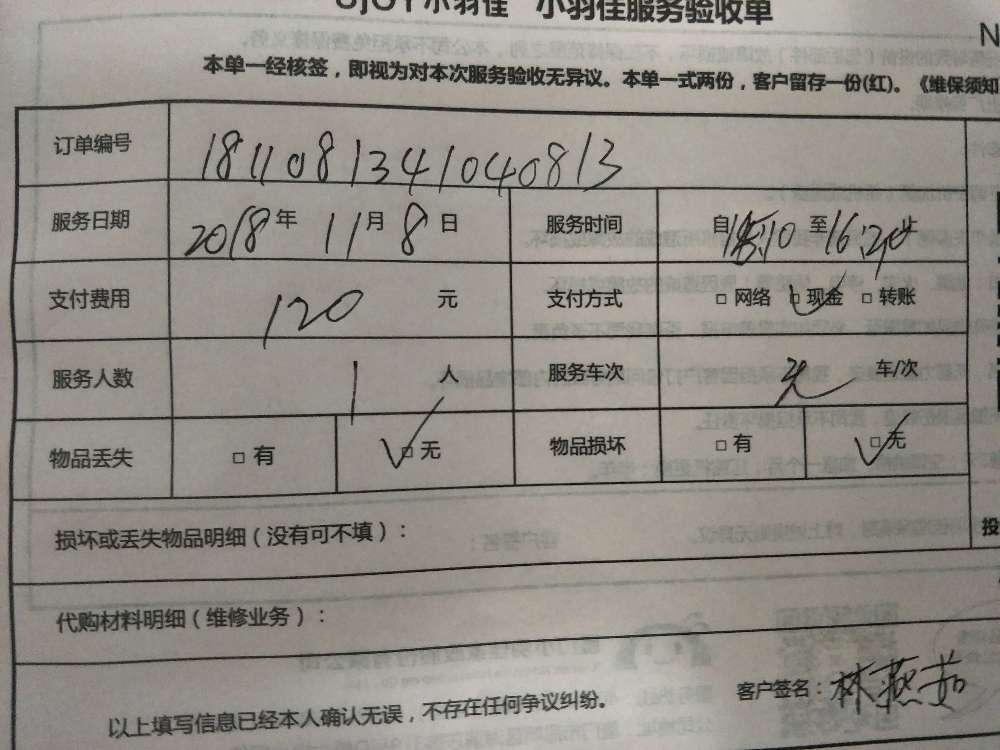 UJOY小羽佳 小羽佳服务验收单
N
本单一经核签，即视为对本次服务验收无异议。本单一式两份，客户留存一份(红)。《维保须知
订单编号 1811081341040813
服务日期 2018年 11月 8日 服务时间 自 至16:20
支付费用 120 元 支付方式 □网络 □现金 □转账
服务人数 1 人 服务车次 无 车/次
物品丢失 □有 □无 物品损坏 □有 □无
损坏或丢失物品明细（没有可不填）：
投
代购材料明细（维修业务）：
客户签名：林燕茹
以上填写信息已经本人确认无误，不存在任何争议纠纷。